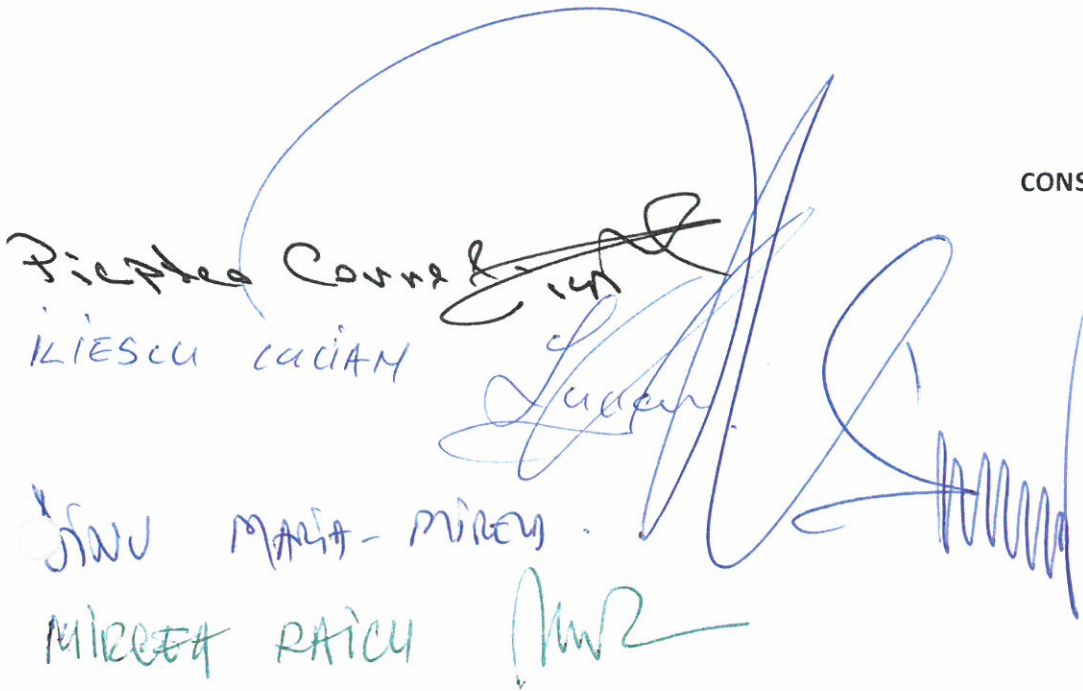 CONS
Pieptea Cornel
ILIESCU LUCIAN Lucian
MARIA-MIRELA
MIRCEA RAICU